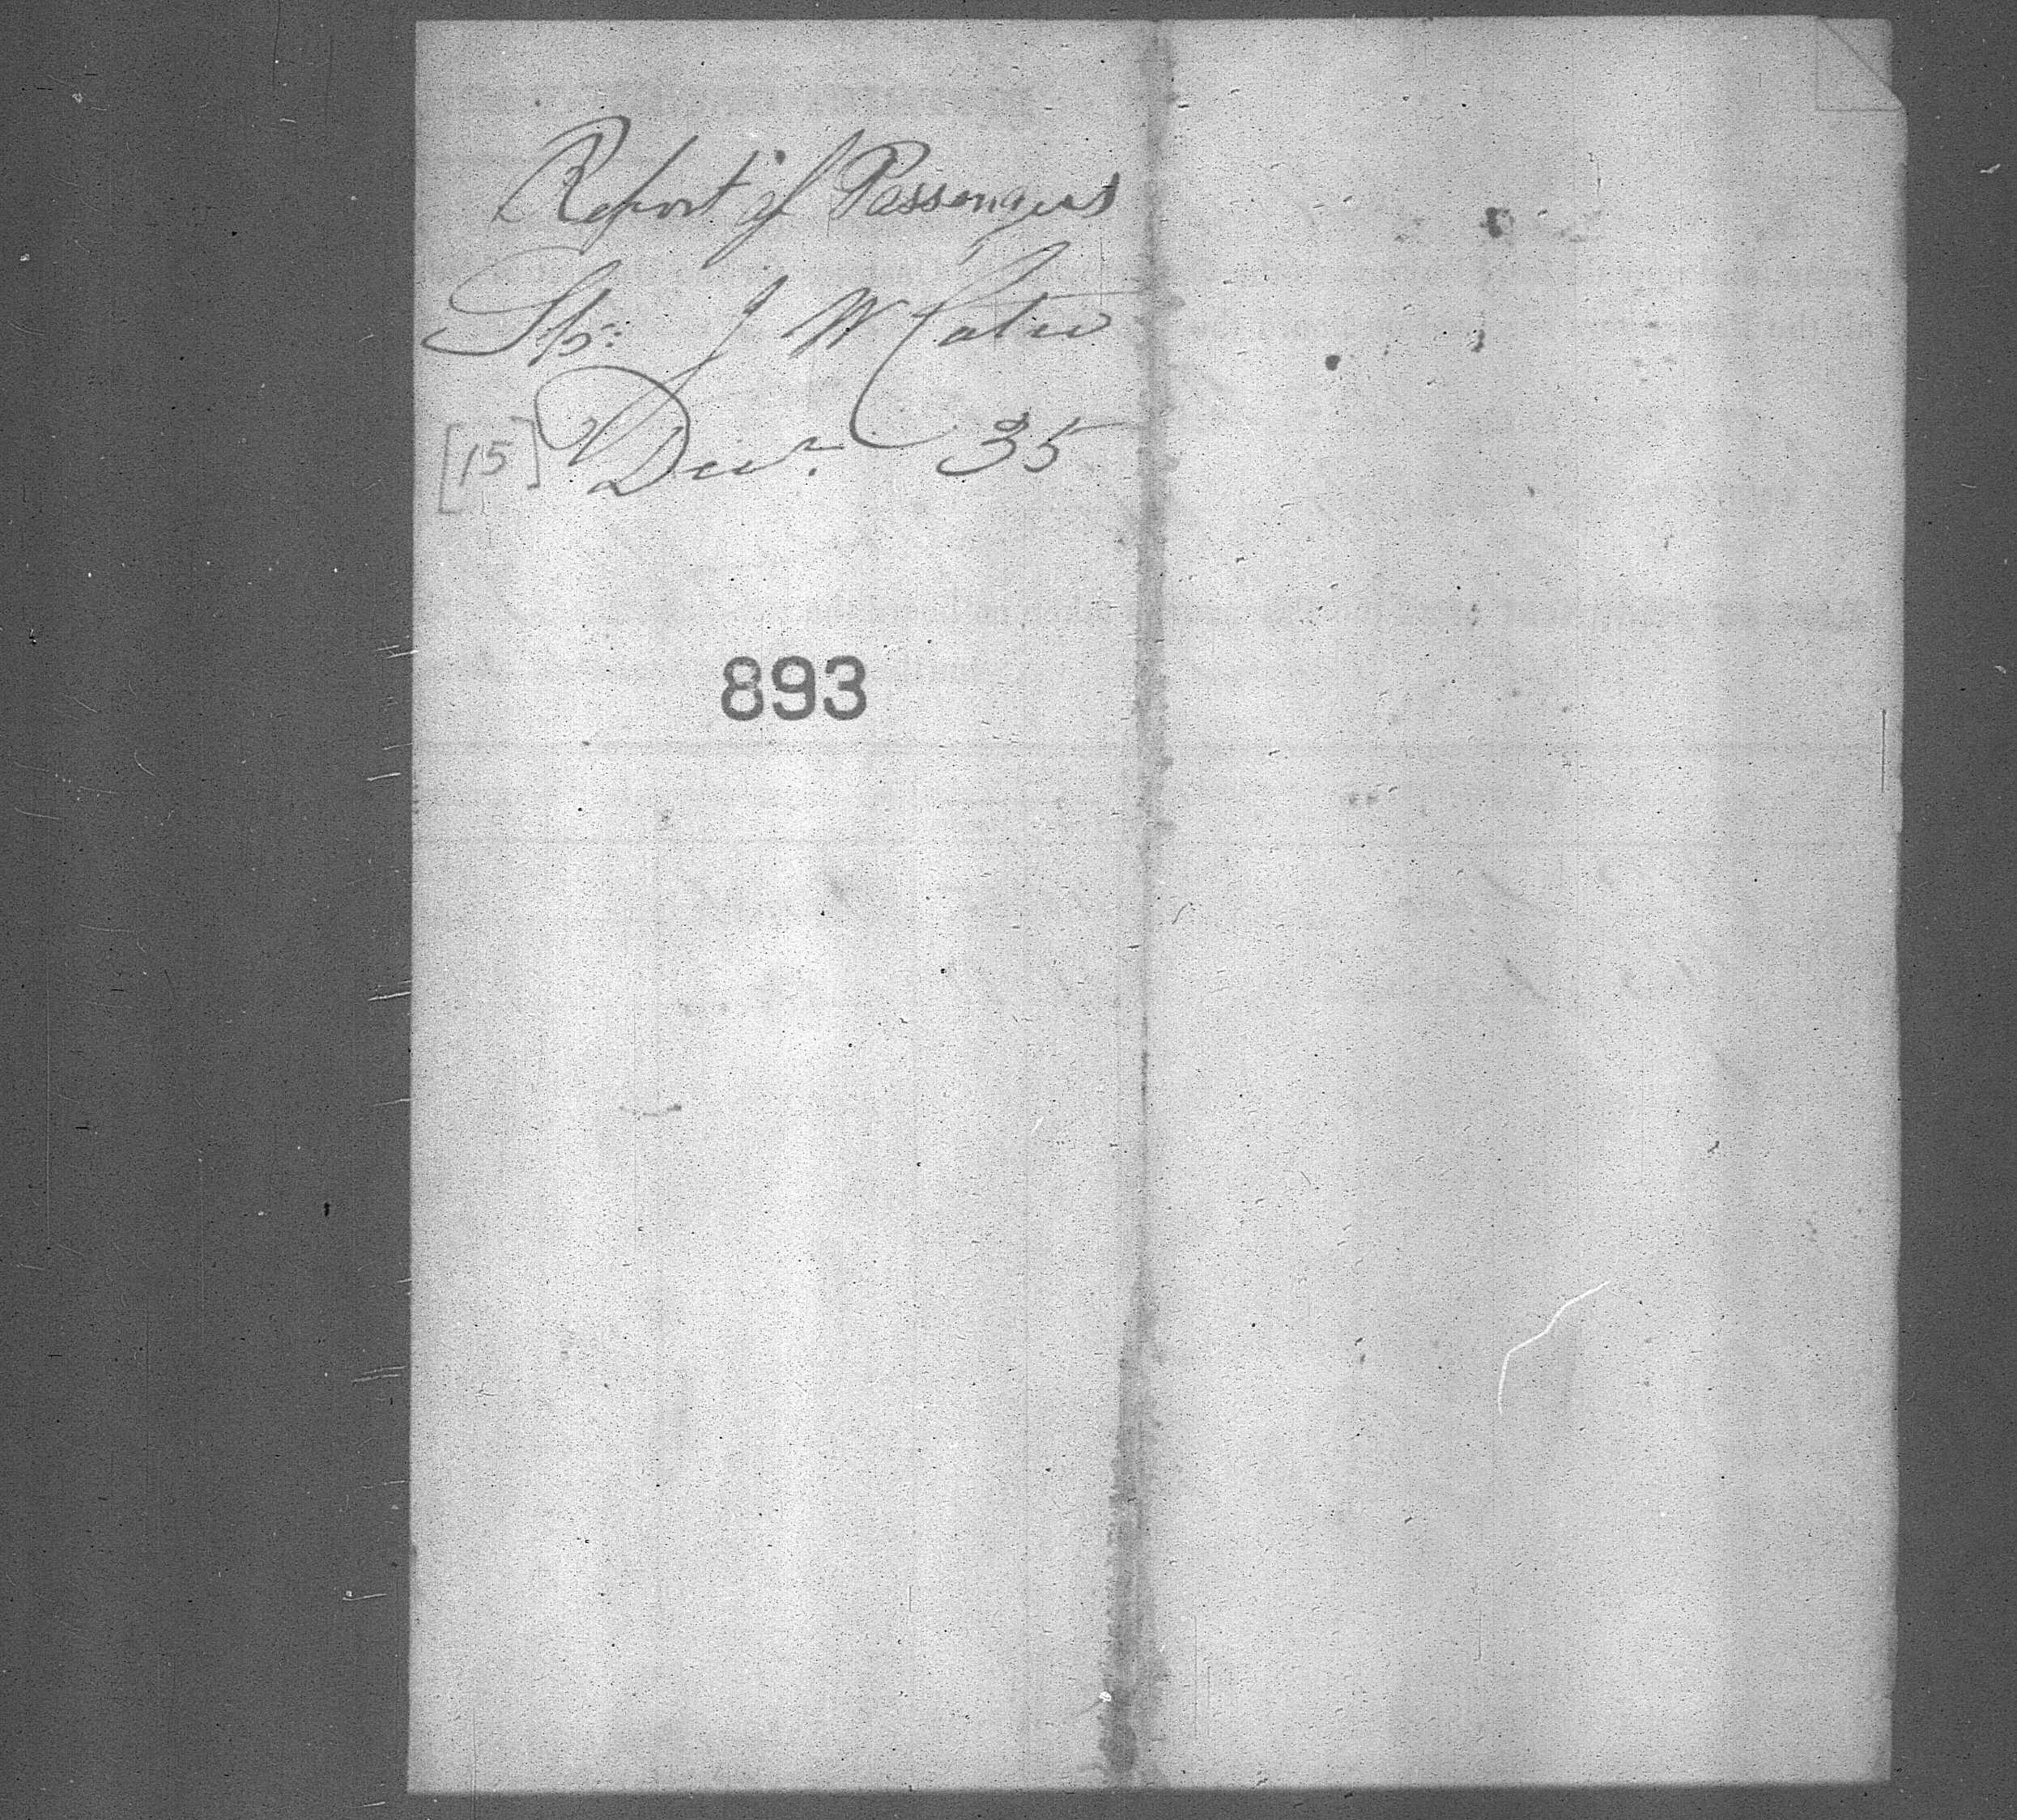 Report of Passengers
Shp: J W Cater
[15] Decr. 35
893